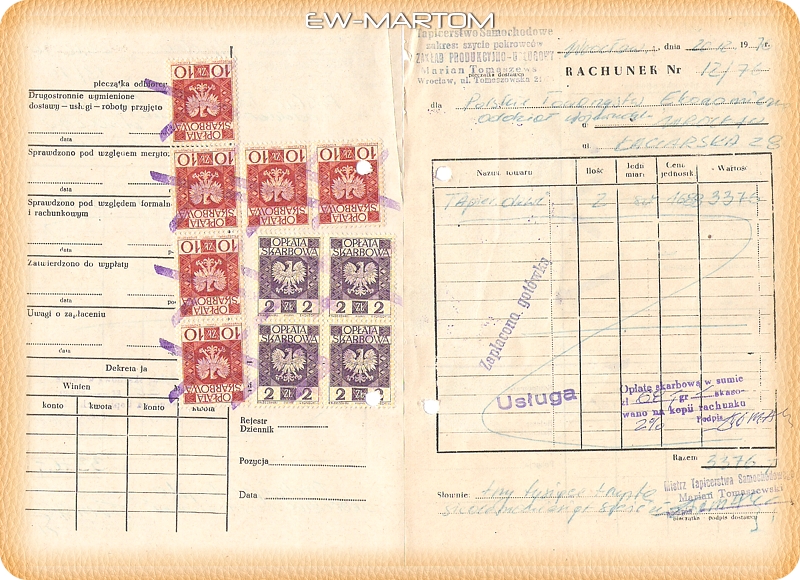 EW-MARTOM
pieczątka odbiorcy
Drugostronnie wymienione
dostawy — usługi — roboty przyjęto
data
Sprawdzono pod względem meryto
data
Sprawdzono pod względem formaln
i rachunkowym
data
Zatwierdzono do wypłaty
data
Uwagi o zapłaceniu
data
Dekretacja
Winien
konto kwota konto kwota
10 ZŁ 10
OPŁATA
SKARBOWA
10 ZŁ 10
OPŁATA
SKARBOWA
10 ZŁ 10
OPŁATA
SKARBOWA
10 ZŁ 10
OPŁATA
SKARBOWA
10 ZŁ 10
OPŁATA
SKARBOWA
10 ZŁ 10
OPŁATA
SKARBOWA
OPŁATA
SKARBOWA
2 ZŁ 2
OPŁATA
SKARBOWA
2 ZŁ 2
OPŁATA
SKARBOWA
2 ZŁ 2
OPŁATA
SKARBOWA
2 ZŁ 2
Rejestr
Dziennik
Pozycja
Data
Tapicerstwo Samochodowe
zakres: szycie pokrowców
ZAKŁAD PRODUKCYJNO-USŁUGOWY
Marian Tomaszews
Wrocław, ul. Tomaszowska 21
pieczątka dostawcy
Wrocław, dnia 20 12 1976 r.
RACHUNEK Nr 12/76
dla Polskie Towarzystw Ekonomiczn
oddział
ul. 28
Nazwa towaru Ilość Jedn. miary Cena jednostk. Wartość
2 1688 3376
Zapłacono gotówką
Usługa
Opłatę skarbową w sumie
zł 68 gr skaso-
wano na kopii rachunku
2% Podpis
Razem 3376
Mistrz Tapicerstwa Samochodowego
Marian Tomaszewski
Słownie: trzy tysiące trzysta
siedemdziesiąt sześć
pieczątka podpis dostawcy